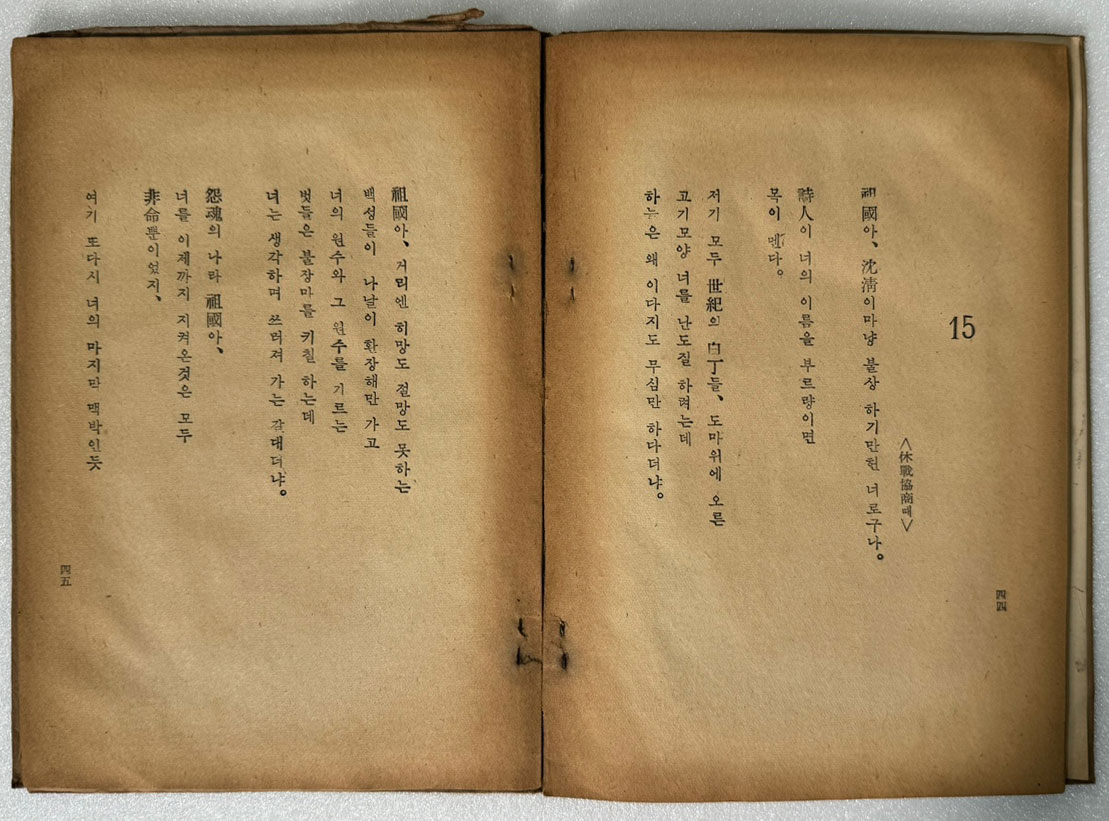 15
<休戰協商때>
祖國아、沈淸이마냥 불상 하기만헌 너로구나。
詩人이 너의 이름을 부르량이면
목이 멘다。
저기 모두 世紀의 白丁들、도마위에 오른
고기모양 너를 난도질 하려는데
하늘은 왜 이다지도 무심만 하다더냐。
四四
祖國아、거리엔 히망도 절망도 못하는
백성들이 나날이 환장해만 가고
너의 원수와 그 원수를 기르는
벗들은 불장마를 키질 하는데
너는 생각하며 쓰러져 가는 갈대더냐。
怨魂의 나라 祖國아、
너를 이제까지 지켜온것은 모두
非命뿐이었지、
여기 또다시 너의 마지만 맥박인듯
四五